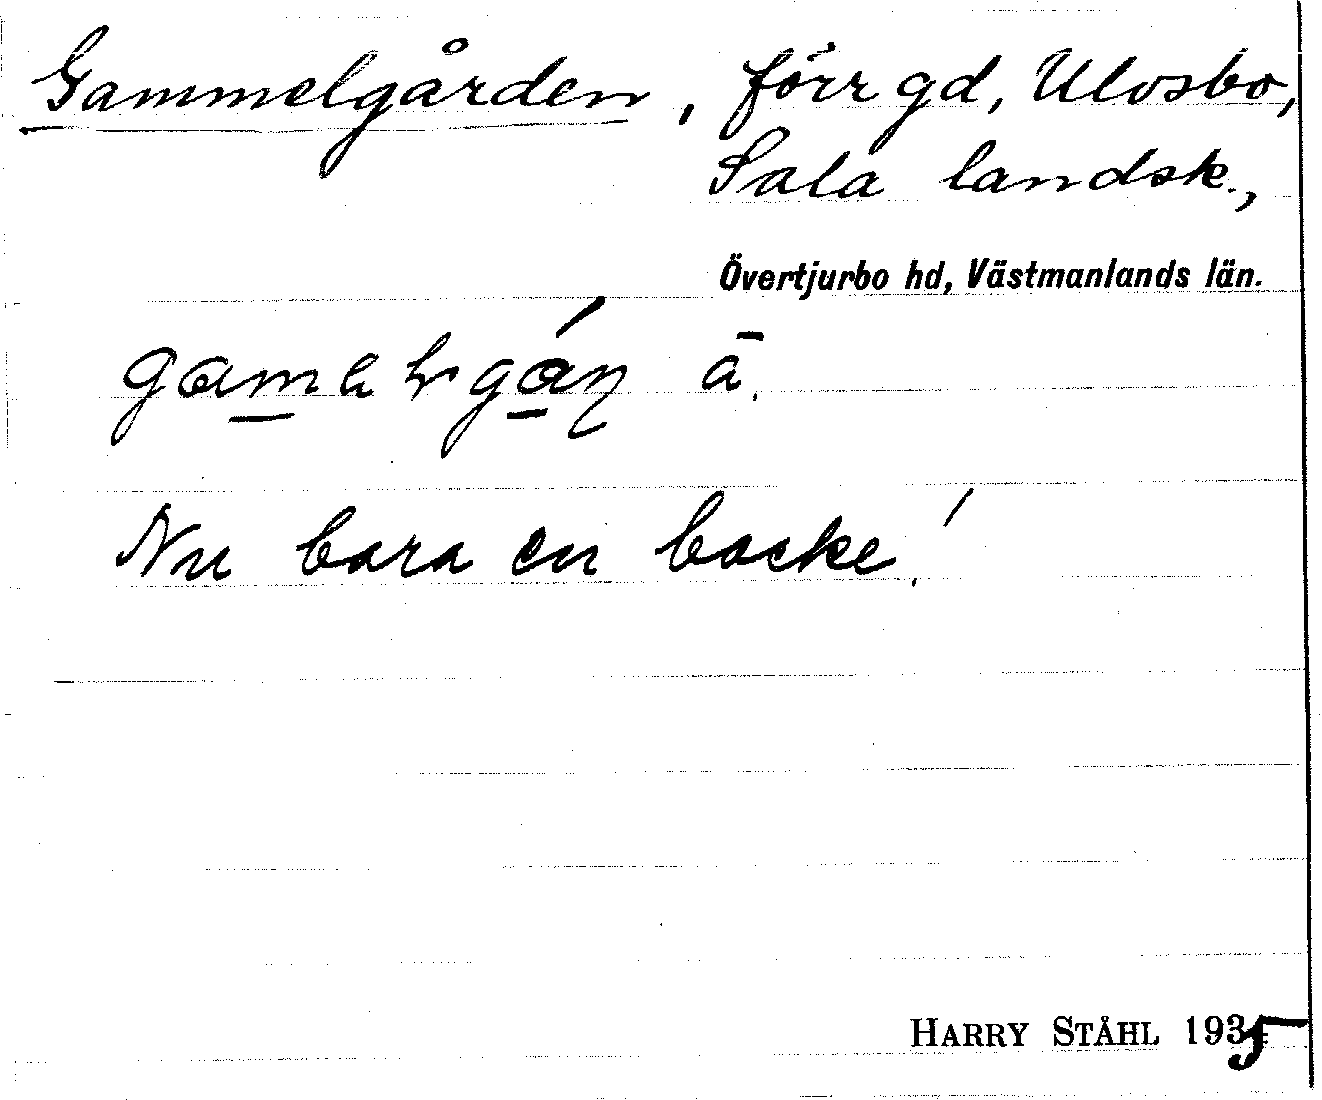 Gammelgården, förr gd, Ulvsbo,
Sala landsk.,
Övertjurbo hd, Västmanlands län.
ā.
Nu bara en backe!
HARRY STÅHL 1935